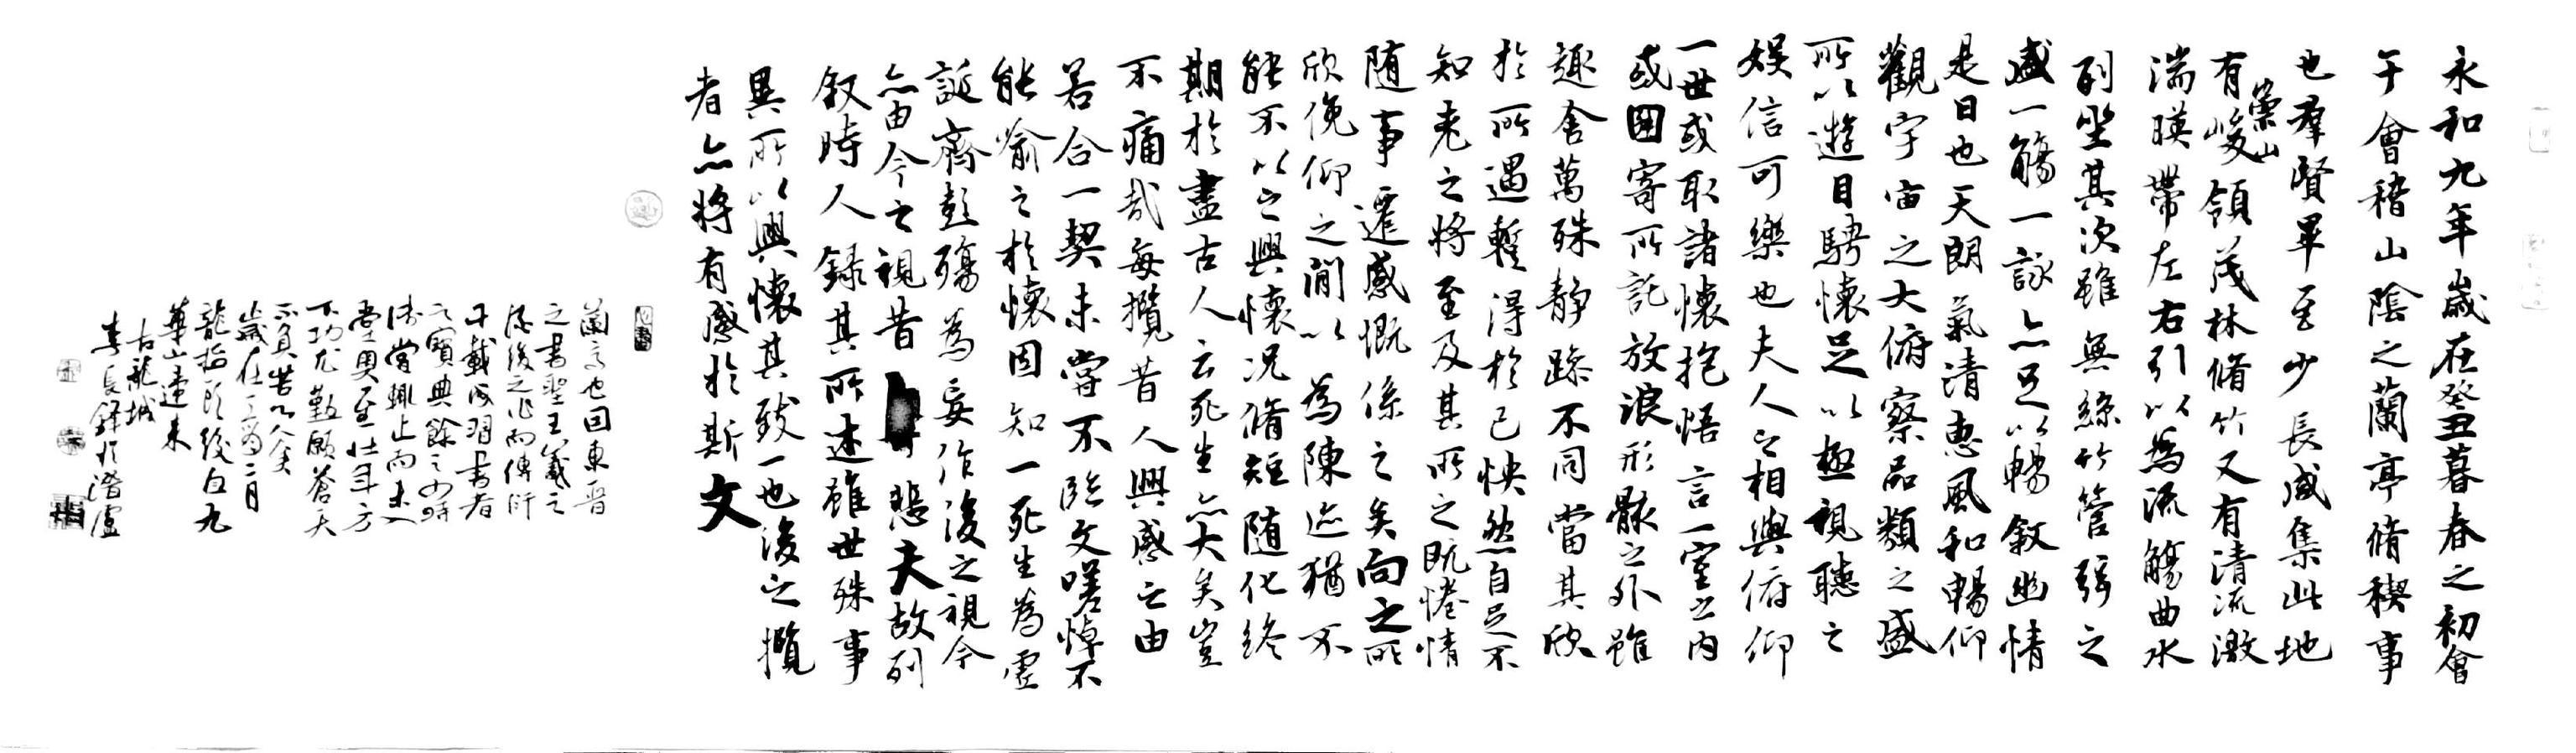 永和九年歲在癸丑暮春之初會
于會稽山陰之蘭亭脩稧事
也羣賢畢至少長咸集此地
有崇山峻領茂林脩竹又有清流激
湍暎帶左右引以為流觴曲水
列坐其次雖無絲竹管弦之
盛一觴一詠亦足以暢敘幽情
是日也天朗氣清惠風和暢仰
觀宇宙之大俯察品類之盛
所以遊目騁懷足以極視聽之
娛信可樂也夫人之相與俯仰
一世或取諸懷抱悟言一室之內
或因寄所託放浪形骸之外雖
趣舍萬殊靜躁不同當其欣
於所遇暫得於己怏然自足不
知老之將至及其所之既惓情
隨事遷感慨係之矣向之所
欣俛仰之間以為陳迹猶不
能不以之興懷況脩短隨化終
期於盡古人云死生亦大矣豈
不痛哉每攬昔人興感之由
若合一契未嘗不臨文嗟悼不
能喻之於懷固知一死生為虛
誕齊彭殤為妄作後之視今
亦由今之視昔悲夫故列
敘時人錄其所述雖世殊事
異所以興懷其致一也後之攬
者亦將有感於斯文
蘭亭也因東晉
之書聖王羲之
後之作而傳衍
千載成習書者
之寶典餘之少時
嘗興止而未入
堂奧至壯年方
下功尤勤願蒼天
不負苦心人矣
歲在二月
龍指
華山
古龍城